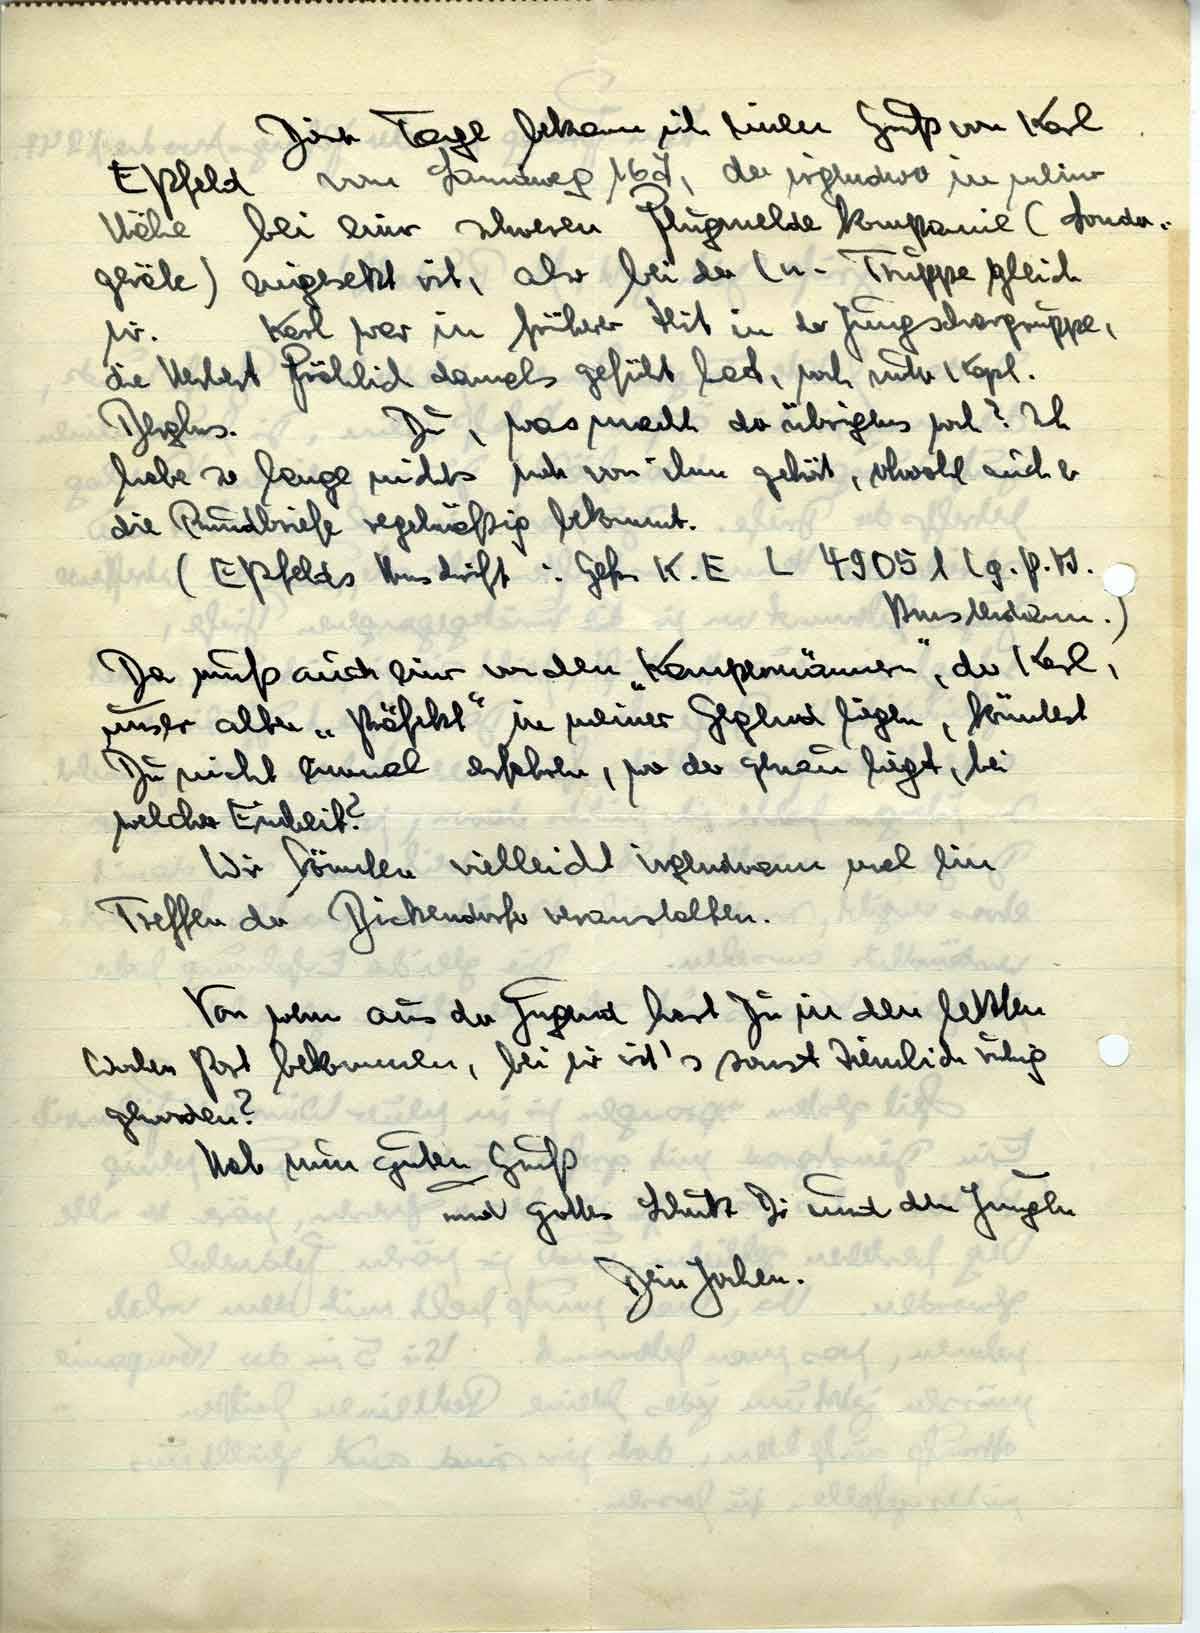 Diese Tage bekam ich einen Gruß von Karl
Epfeld vom 167, der irgendwo in meiner
Nähe bei einer schweren Flugmelde Kompanie (Sonder-
geräte) eingesetzt ist, also bei der Ln-Truppe gleich
mir. Karl war in früherer Zeit in der Jungschargruppe,
die Herbert Fröhlich damals geführt hat, noch unter Kapl.
Du, was macht der übrigens noch? Ich
habe so lange nichts mehr von ihm gehört, obwohl auch er
die Rundbriefe regelmäßig bekommt.
(Epfelds Anschrift: Gefr. K. E L 49051 Lg. p. A.
Amsterdam.)
Da muß auch einer von den "Kampermännern", der Karl,
unser alter "Präfekt" in meiner Gegend liegen, könntest
Du nicht einmal erfahren, wo der genau liegt, bei
welcher Einheit?
Wir könnten vielleicht irgendwann mal ein
Treffen der Bickendorfer veranstalten.
Von wem aus der Jugend hast Du in den letzten
Wochen Post bekommen, bei mir ist's sonst ziemlich ruhig
geworden?
Hab nun guten Gruß
und Gottes Schutz Dir und den Jungen
Dein Jochen.